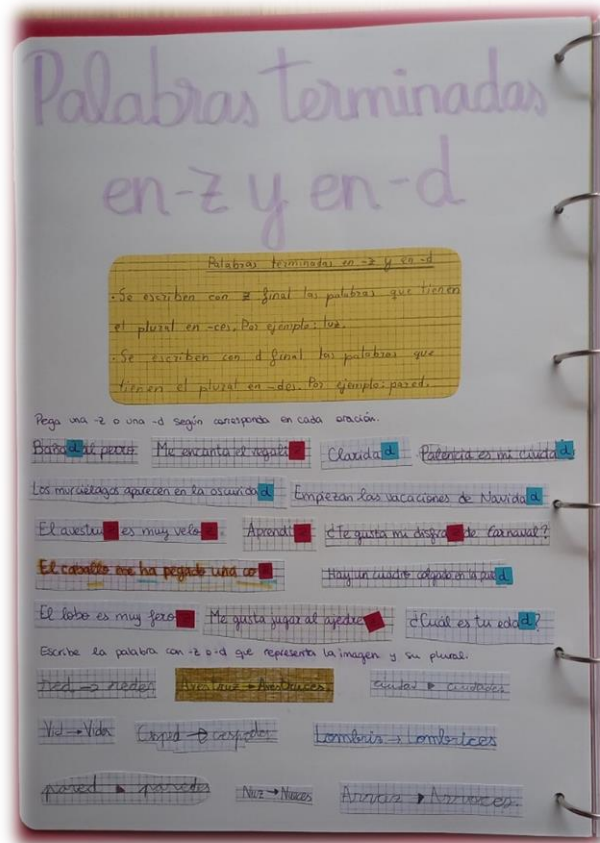 Palabras terminadas
en -z y en -d
Palabras terminadas en -z y en -d
· Se escriben con z final las palabras que tienen
el plural en -ces. Por ejemplo: luz.
· Se escriben con d final las palabras que
tienen el plural en -des. Por ejemplo: pared.
Pega una -z o una -d según corresponda en cada oración.
Bañad al perro. Me encanta el regaliz Claridad Palencia es mi ciudad.
Los murciélagos aparecen en la oscuridad Empiezan las vacaciones de Navidad
El avestruz es muy veloz. Aprendiz ¿Te gusta mi disfraz de Carnaval?
El caballo me ha pegado una coz Hay un cuadro colgado en la pared
El lobo es muy feroz Me gusta jugar al ajedrez ¿Cuál es tu edad?
Escribe la palabra con -z o -d que representa la imagen y su plural.
red → redes Avestruz → Avestruces ciudad → ciudades
Vid → Vides Cesped → cespedes Lombriz → Lombrices
pared → paredes Nuez → Nueces Arroz → Arroces